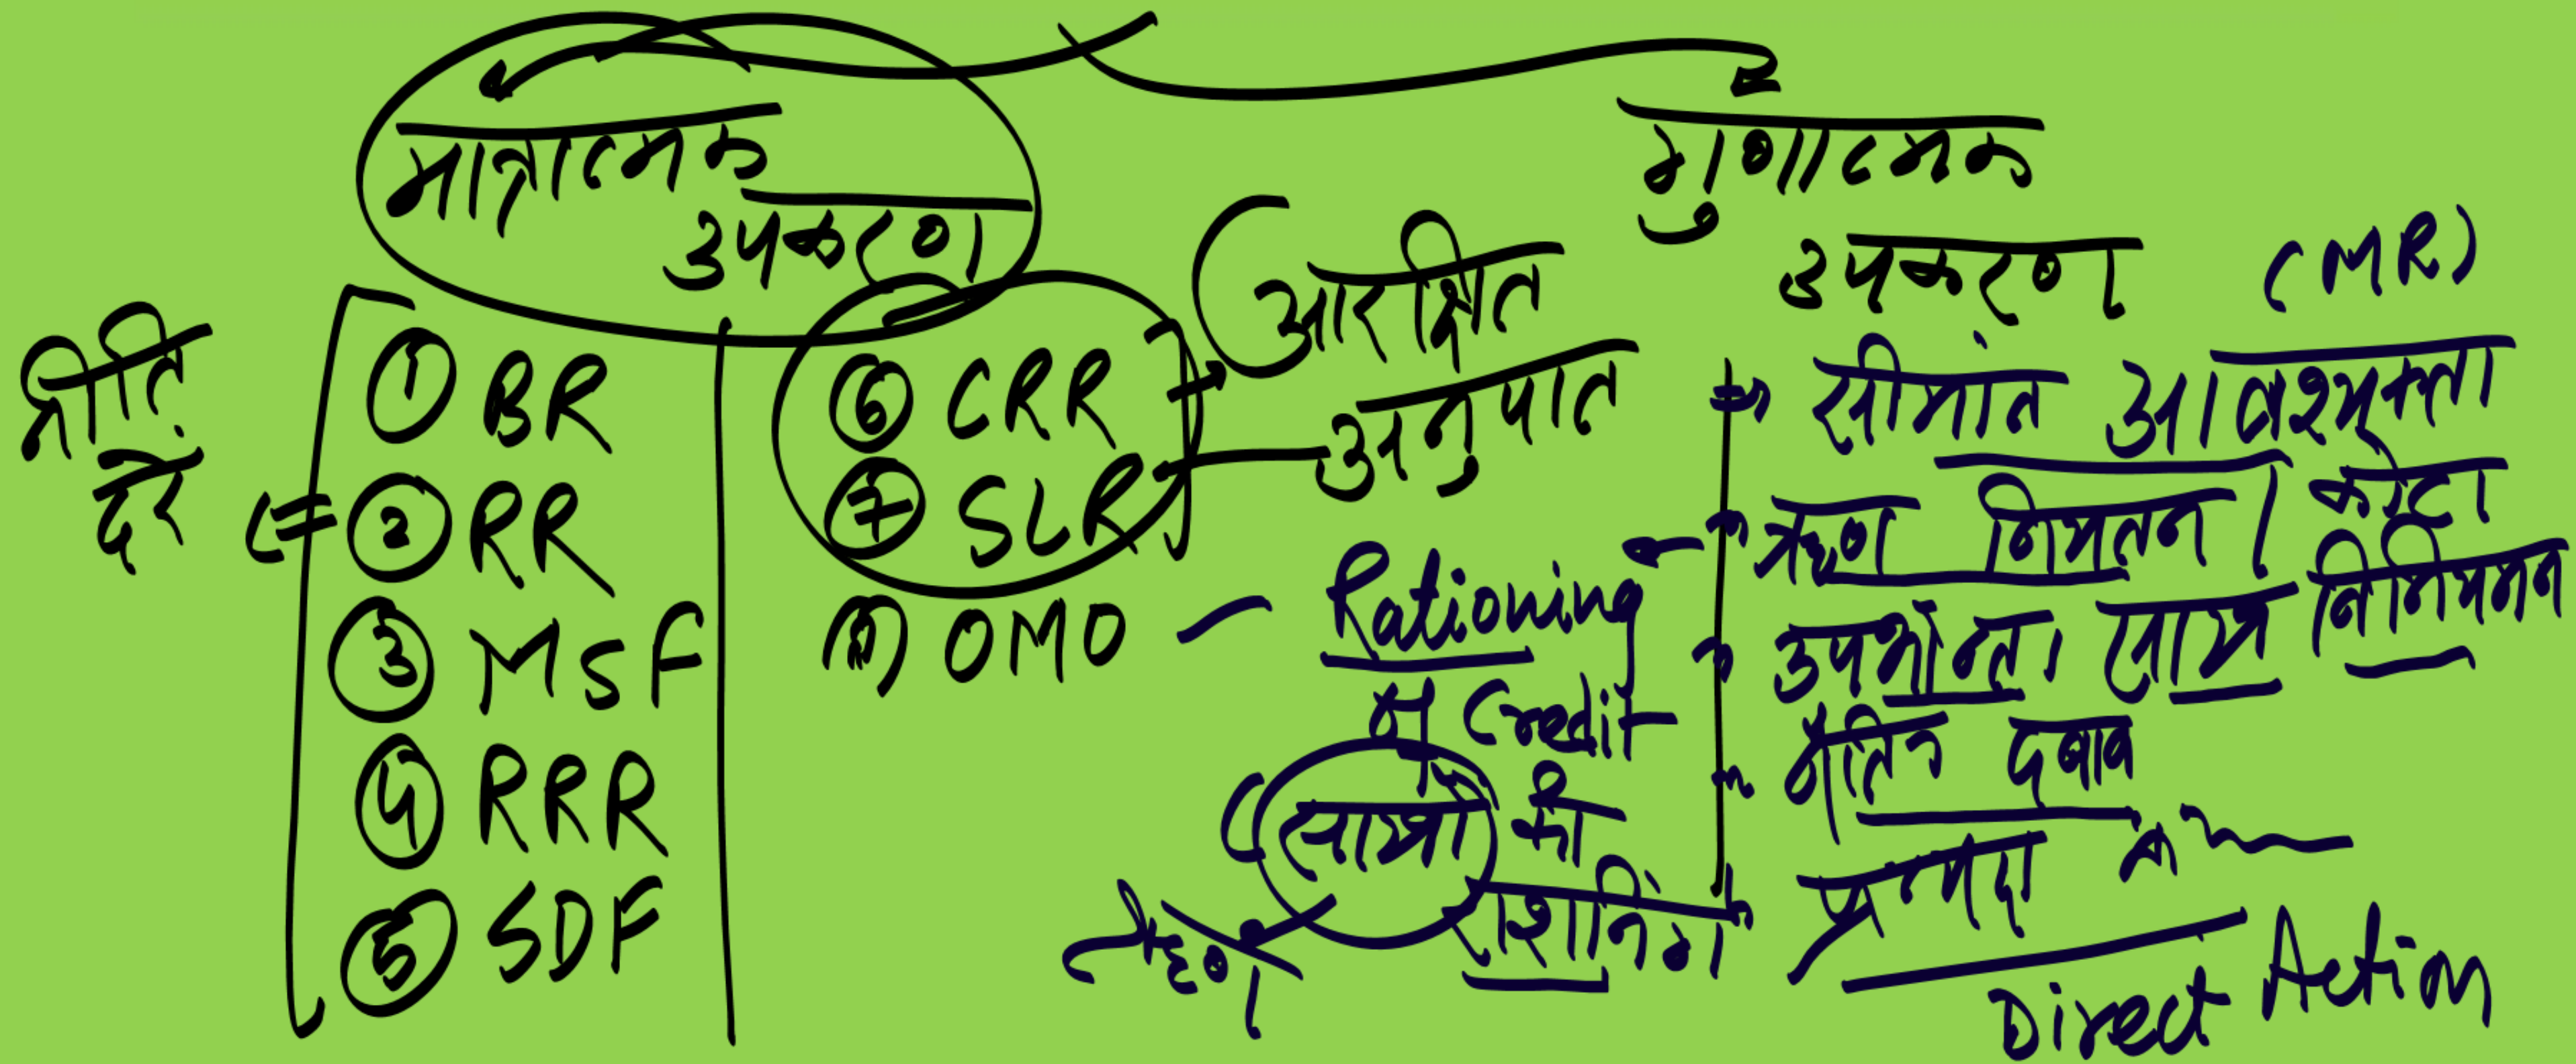 मात्रात्मक
उपकरण
नीति
दरें
① BR
② RR
③ MSF
④ RRR
⑤ SDF
⑥ CRR
⑦ SLR
⑧ OMO
आरक्षित
अनुपात
गुणात्मक
उपकरण (MR)
सीमांत आवश्यकता
ऋण नियतन / कोटा
उपभोक्ता साख विनियमन
नैतिक दबाव
Direct Action
Rationing
of Credit
(साख की
राशनिंग
ऋण